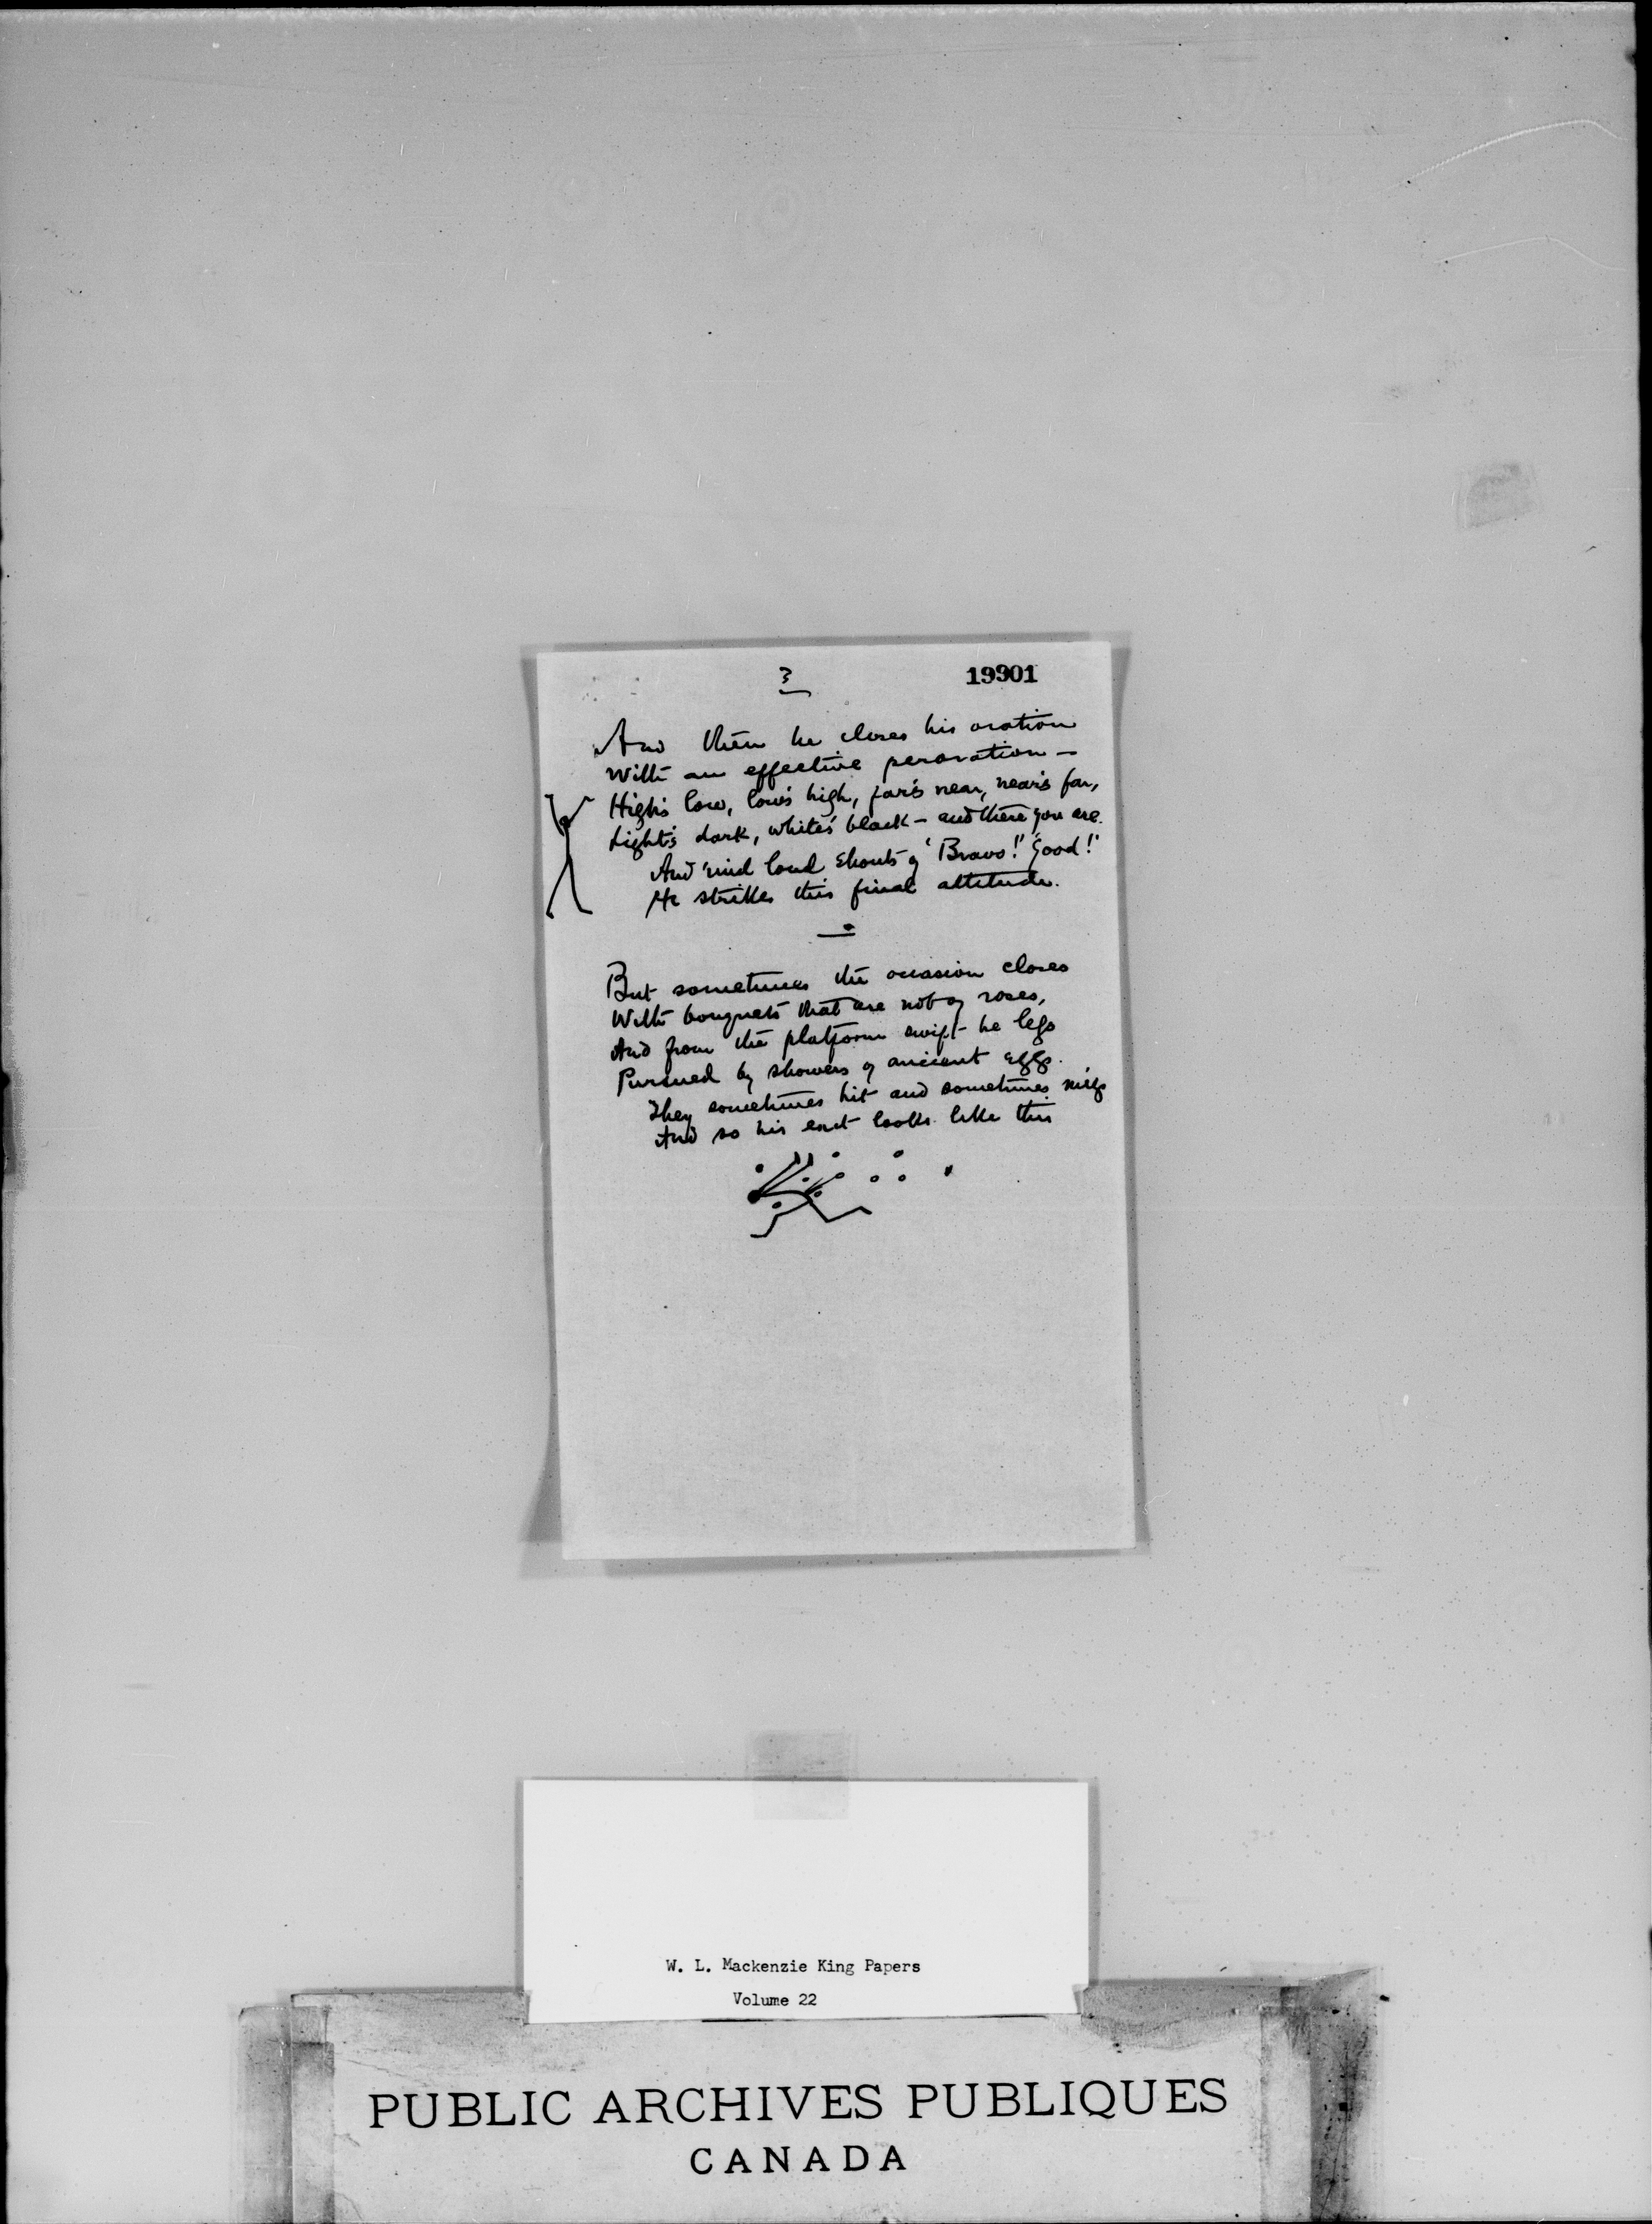 3
19901
And then he closes his oration
With an effective peroration —
High's low, low's high, far's near, near's far,
Light's dark, white's black — and there you are.
And 'mid loud shouts of "Bravo!" "Good!"
He strikes this final attitude.
But sometimes the occasion closes
With bouquets that are not of roses,
And from the platform swift he legs
Pursued by showers of ancient eggs.
They sometimes hit and sometimes miss
And so his exit looks like this
W. L. Mackenzie King Papers
Volume 22
PUBLIC ARCHIVES PUBLIQUES
CANADA